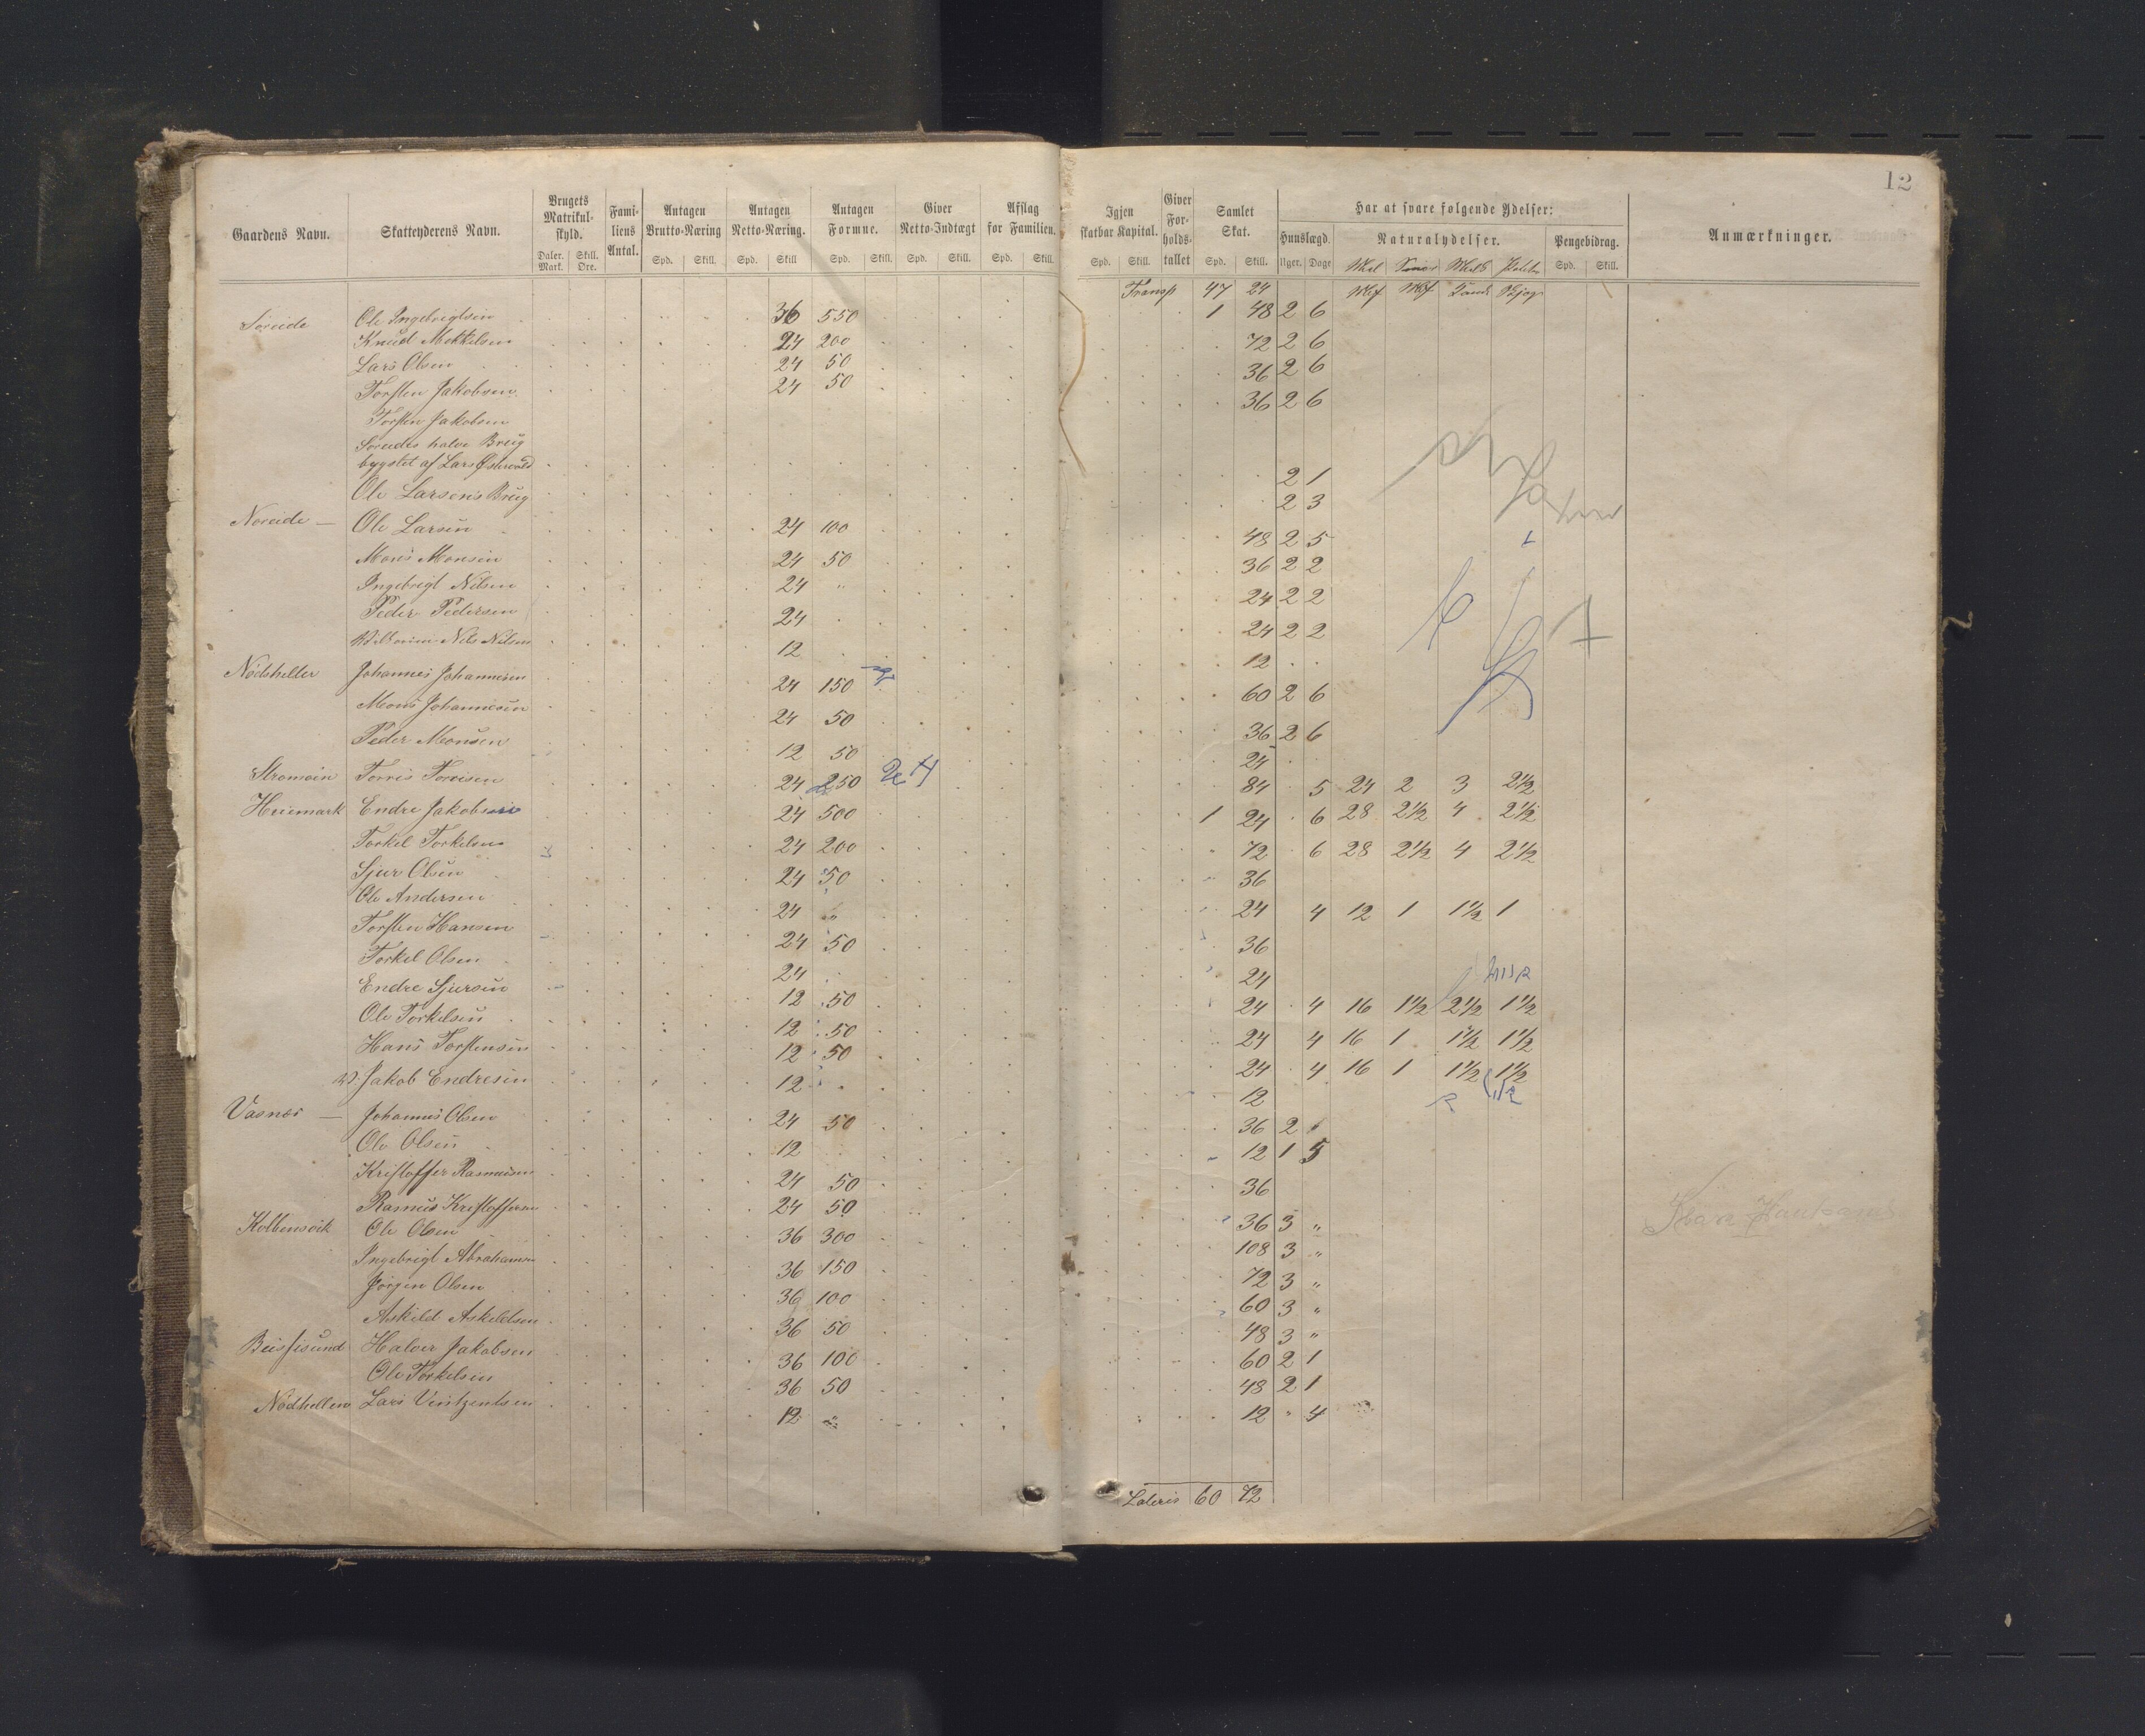 12
Gaardens Navn. Skatteyderens Navn. Brugets Matrikulskyld. Familiens Antal. Antagen Brutto-Næring Antagen Netto-Næring. Antagen Formue. Giver Netto-Indtægt Afslag for Familien. Igjen skatbar Kapital. Giver Forholdstallet Samlet Skat. Har at svare følgende Ydelser: Anmærkninger.
Huuslægd. Naturalydelser. Pengebidrag.
Daler. Mark. Skill. Øre. Spd. Skill. Spd. Skill Spd. Skill. Spd. Skill. Spd. Skill. Spd. Skill. Spd. Skill. Uger. Dage Spd. Skill.
Transp 47 24
Søreide Ole Ingebrigtsen 36 550 1 48 2 6
Knud Mekkelsen 24 200 72 2 6
Lars Olsen 24 50 36 2 6
Torsten Jakobsen 24 50 36 2 6
Torsten Jakobsen
Søreides halve Brug
bygslet af Lars 2 1
Ole Larsens Brug 2 3
Noreide — Ole Larsen 24 100 48 2 5
Mons Monsen 24 50 36 2 2
Ingebrigt Nilsen 24 " 24 2 2
Peder Pedersen 24 24 2 2
Nils Nilsen 12 12
Nødsheller Johannes Johannesen 24 150 60 2 6
Mons Johannesen 24 50 36 2 6
Peder Monsen 12 50 24
Strømøin Torris Torrisen 24 250 84 5 24 2 3 2½
Heiemark Endre Jakobsen 24 500 1 24 6 28 2½ 4 2½
Torkel Torkelsen 24 200 72 6 28 2½ 4 2½
Sjur Olsen 24 50 36
Ole Andersen 24 " 24 4 12 1 1½ 1
Torsten Hansen 24 50 36
Torkel Olsen 24 24
Endre Sjursen 12 50 24 4 16 1½ 2½ 1½
Ole Torkelsen 12 50 24 4 16 1 1½ 1½
Hans Torstensen 12 50 24 4 16 1 1½ 1½
Jakob Endresen 12 12
Vasnes — Johannes Olsen 24 50 36 2
Ole Olsen 12 12 1 5
Kristoffer Rasmusen 24 50 36
Rasmus Kristoffersen 24 50 36 3 "
Kolbensvik Ole Olsen 36 300 108 3 "
Ingebrigt Abrahamsen 36 150 72 3 "
Jørgen Olsen 36 100 60 3 "
Askild Askildsen 36 50 48 3 "
Halvor Jakobsen 36 100 60 2 1
Ole Torkelsen 36 50 48 2 1
Nødhellen Lars Vintzentsen 12 " 12 " 4
Lateris 60 72